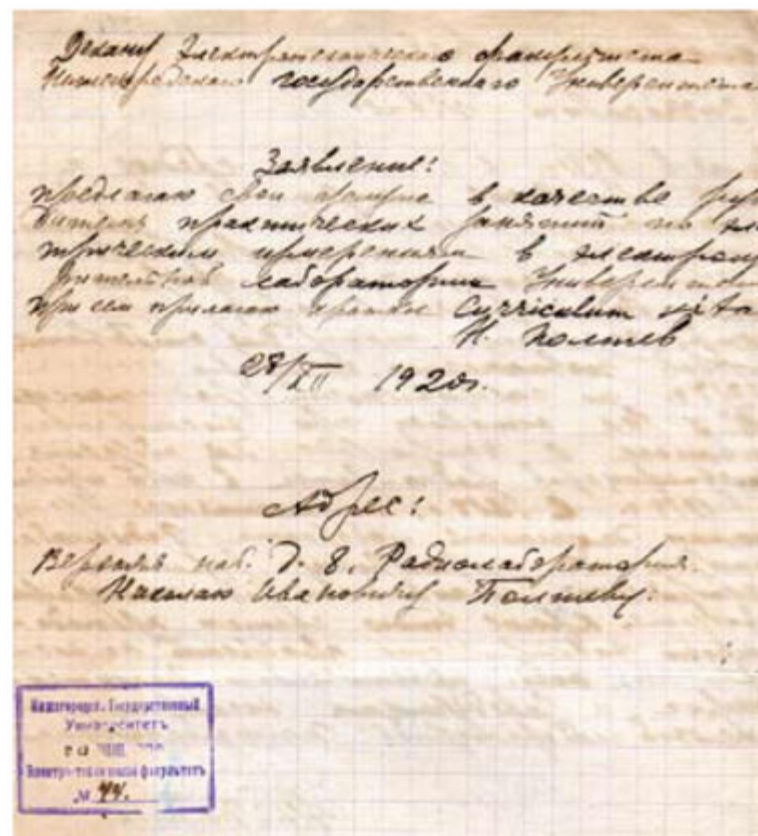 Декану Электротехнического факультета
Нижегородского государственного Университета
Заявление:
предлагаю свои услуги в качестве руко
дителя практических занятий по эле
трическим измерениям в электроиз
лаборатории Универси
при сем прилагаю краткое Curriculum vita
Н. Полтев
28/XII 1920г.
Адрес:
Верхняя наб. д. 8. Радиолаборатория.
Николаю Ивановичу Полтеву.
Нижегород. Государственный
Университетъ
факультетъ
№ 44.